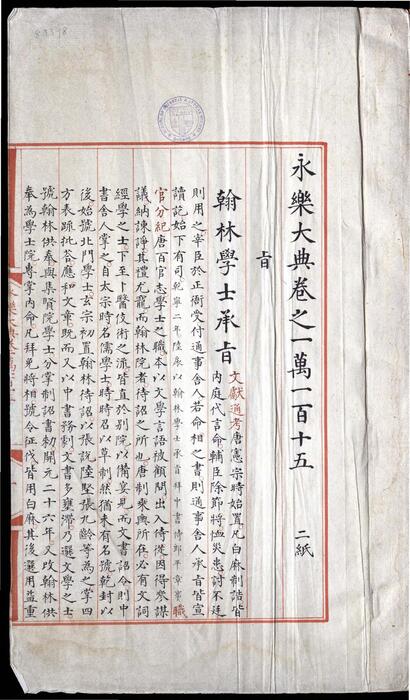 永樂大典卷之一萬一百十五　二紙
旨
翰林學士承旨 文獻通考唐憲宗時始置凡白麻制誥皆
內庭代言命輔臣除節將恤災患討不廷
則用之宰臣於正衙受付通事舍人若命相之書則通事舍人承旨皆宣
讀訖始下有司乾寧二年陸扆以翰林學士承旨拜中書侍郎平章事職
官分紀唐百官志學士之職本以文學言語被顧問出入侍從因得參謀
議納諫諍其禮尤寵而翰林院者待詔之所也唐制乘輿所在必有文詞
經學之士下至卜醫伎術之流皆直於別院以備宴見而文書詔令則中
書舍人掌之自太宗時名儒學士時時召以草制然猶未有名號乾封以
後始號北門學士玄宗初置翰林待詔以張說陸堅張九齡等為之掌四
方表疏批荅應和文章既而又以中書務劇文書多壅滯乃選文學之士
號翰林供奉與集賢院學士分掌制詔書勑開元二十六年又改翰林供
奉為學士院專掌內命凡拜免將相號令征伐皆用白麻其後選用益重